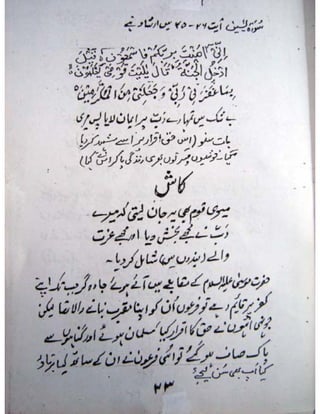 سورۃ یٰسین آیت ۲۶-۲۵ میں ارشاد ہے
اِنِّیْ اٰمَنْتُ بِرَبِّكُمْ فَاسْمَعُوْنِ قِیْلَ
ادْخُلِ الْجَنَّةَ قَالَ یٰلَیْتَ قَوْمِیْ یَعْلَمُوْنَ
بِمَا غَفَرَ لِیْ رَبِّیْ وَجَعَلَنِیْ مِنَ الْمُكْرَمِیْنَ
بے شک میں تمہارے رب پر ایمان لایا پس میری
بات سنو (اس حق اقرار پر اسے شہید کر دیا
گیا
کاش
میری قوم بھی یہ جان لیتی کہ میرے
رب نے مجھے بخش دیا اور مجھے عزت
والے (بندوں میں) شامل کر دیا۔
حضرت موسیٰ علیہ السلام کے مقابلے میں آئے ہوئے جادوگر جب تک اپنے
کفر پر قائم رہے تو فرعون اُن کو اپنا مقرب بنانے والا تھا لیکن
جونہی انہوں نے حق کا اقرار کیا مسلمان ہوئے اور گناہوں سے
پاک صاف ہو گئے تو اسی فرعون نے ان کے ساتھ کیا برتاؤ
کیا آپ بھی سُن لیجئے
۲۳